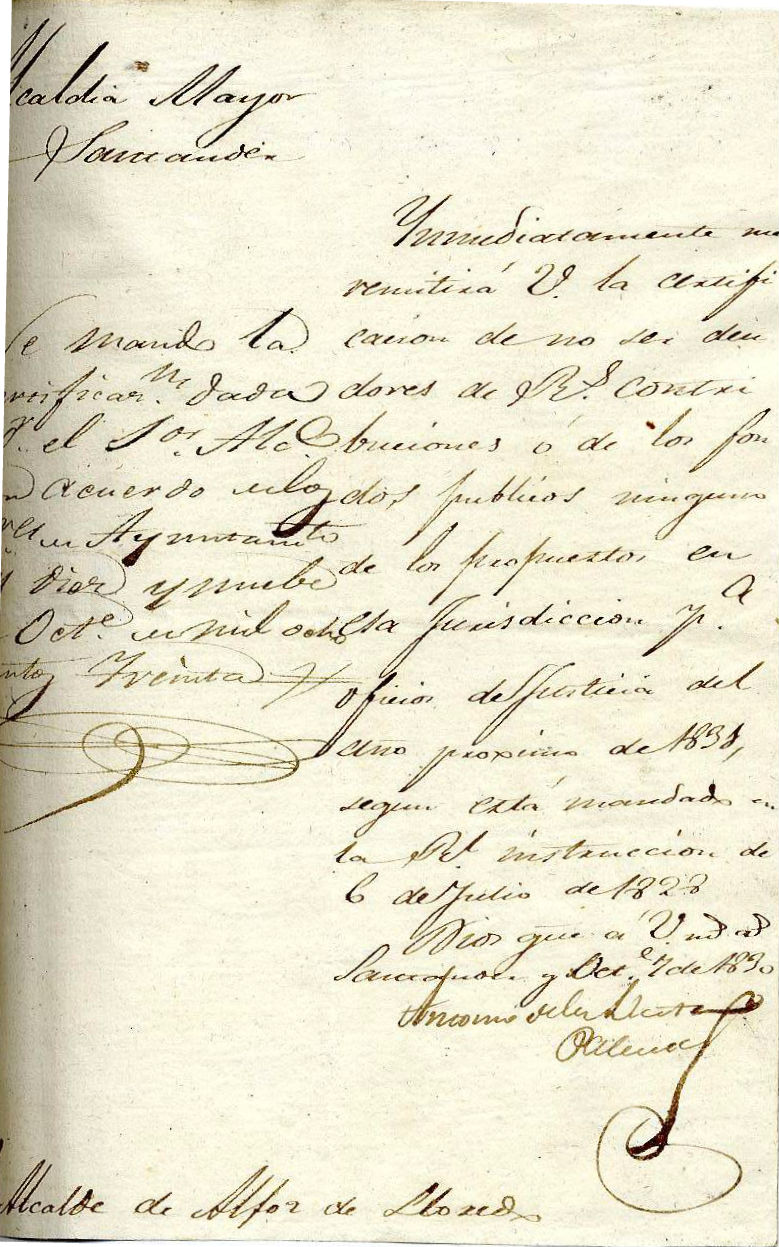 Alcaldia Mayor
Santander
Ynmediatamente me
remitirá V. la certifi
cacion de no ser deu
dores de Rs. contri
buciones ó de los fon
dos publicos ninguno
de los propuestos en
esta Jurisdiccion p.a
oficios de Justicia del
año proximo de 1831,
segun está mandado en
la Rl. instruccion de
6 de Julio de 1828
Dios gue á V. ms as
Santander y Oct.e 7 de 1830
Antonio de la
Se mando la
certificaz.n dada
el Sor. Alc.
acuerdo
Ayuntamto
diez y nuebe
Oct.e mil ocho
Treinta
Alcalde de Alfoz de Lloredo